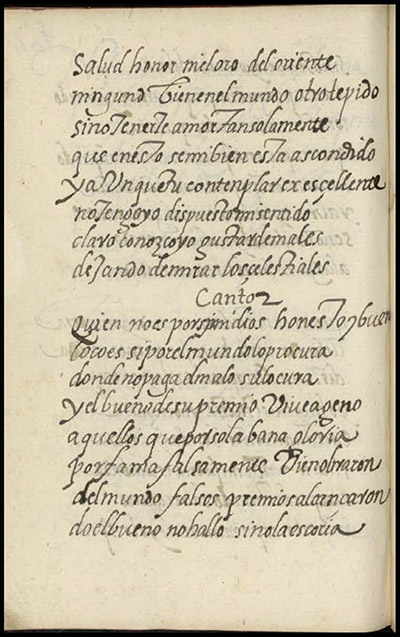 Salud honor mi eloro del oriente
ninguno Tienenel mundo otro te pido
sino Tenerte amor Tan solamente
que en esTo se mi bien esta ascondido
y aUnque tu contenplar ex esçellente
no Tengo yo dispuesto mi sentido
claro conozco yo gustar de males
dejando de mirar los çelestiales
Canto 2
Quien no es por si en dios honesTo y buen
loco es si por el mundo lo procura
donde no paga el malo su locura
y el bueno de su premio Vive ageno
aquellos que por sola bana gloria
por fama falsamente Vien obraron
del mundo falsos premios alcançaron
do el bueno no hallo sino la escoria